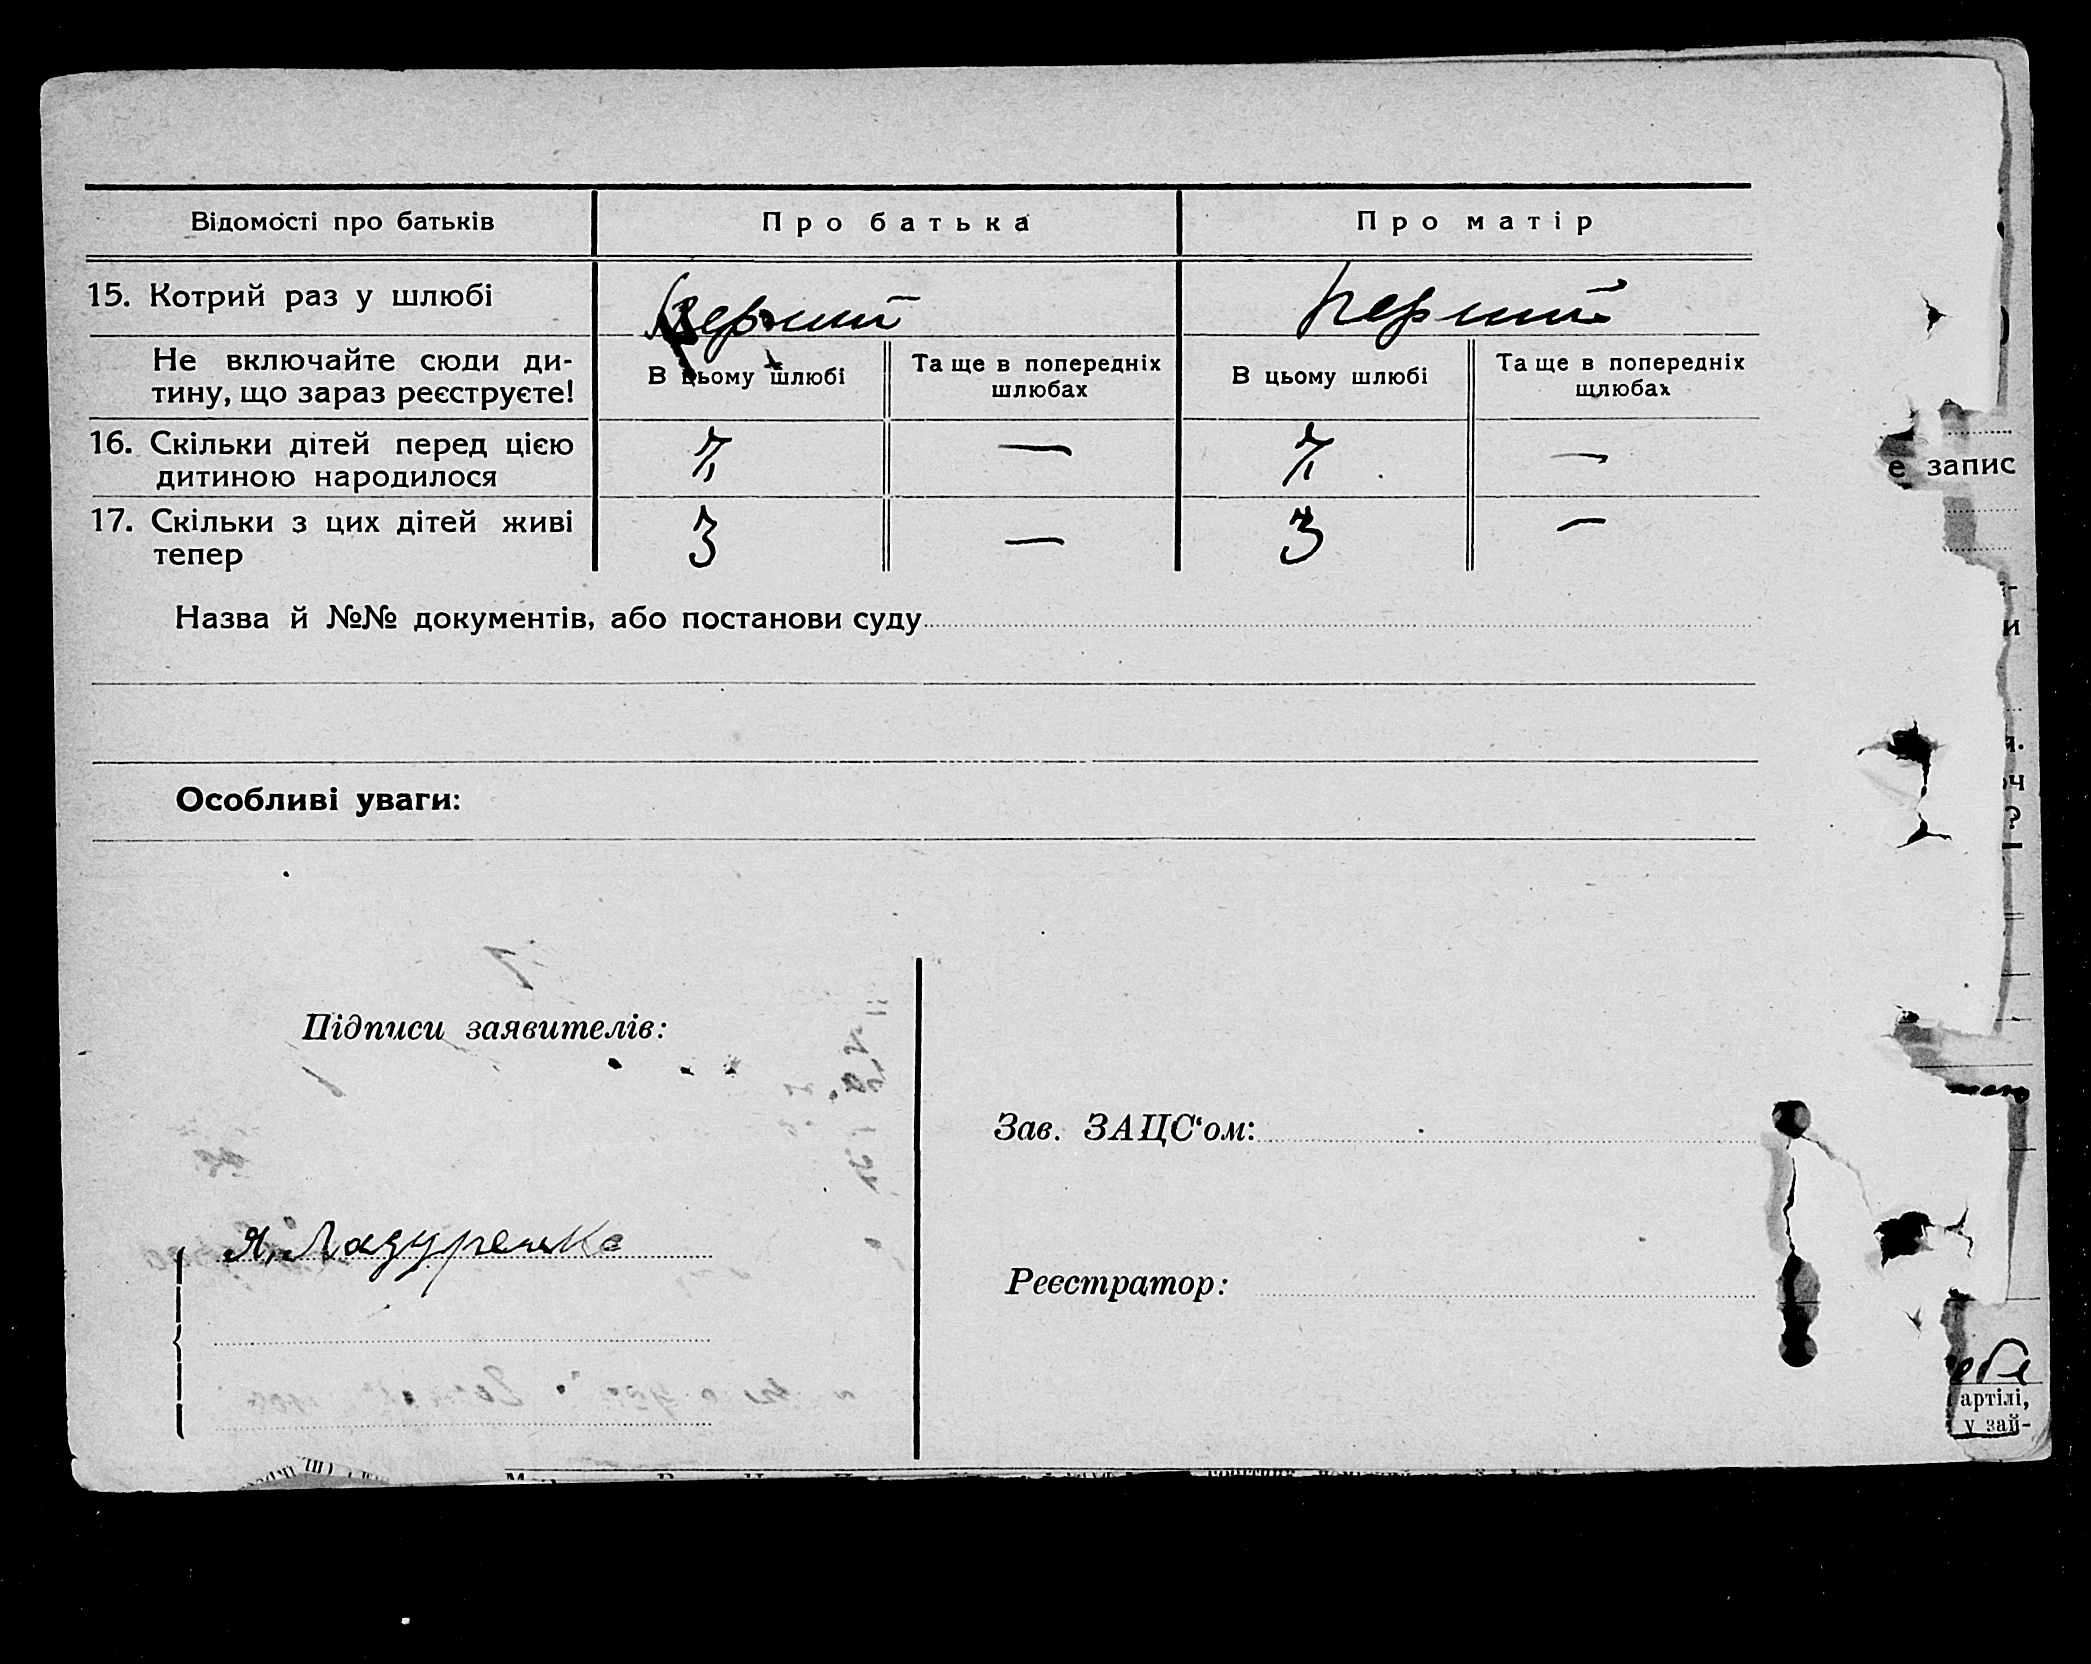 Відомості про батьків
Про батька
Про матір
15. Котрий раз у шлюбі
перший
перший
Не включайте сюди ди-
тину, що зараз реєструєте!
В цьому шлюбі
Та ще в попередніх
шлюбах
В цьому шлюбі
Та ще в попередніх
шлюбах
16. Скільки дітей перед цією
дитиною народилося
7
—
7
—
17. Скільки з цих дітей живі
тепер
3
—
3
—
е запис
Назва й №№ документів, або постанови суду
Особливі уваги:
Підписи заявителів:
Я. Лазуренко
Зав. ЗАЦС'ом:
Реєстратор:
артілі,
у зай-